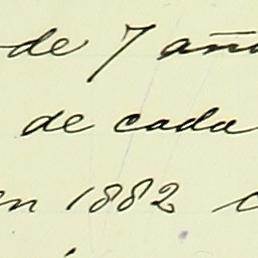 de 7 años
de cada
en 1882